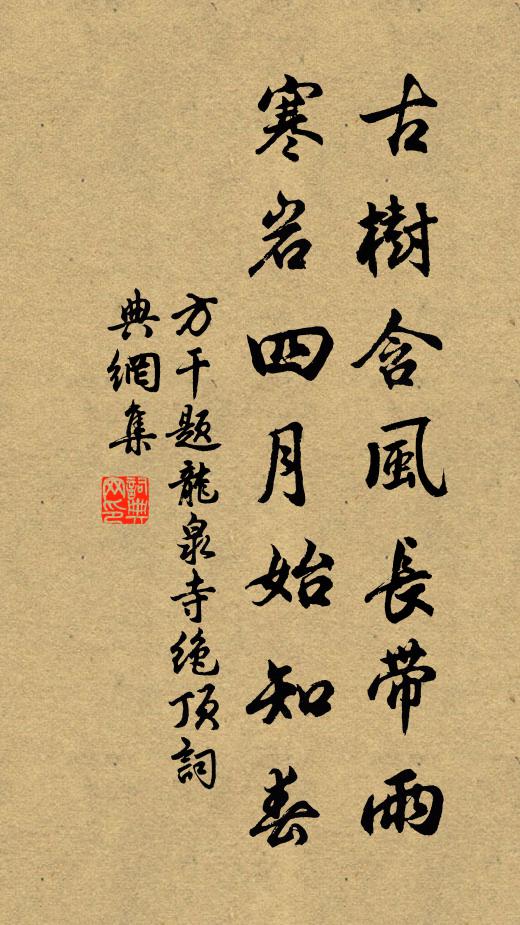 古樹含風長帶雨
寒岩四月始知春
方干題龍泉寺绝頂詞
典網集
詞典网印